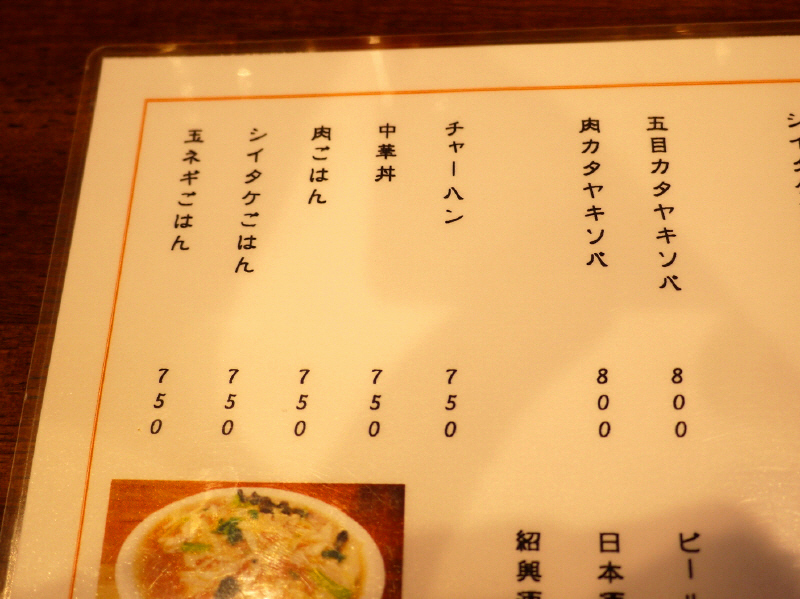 五目カタヤキソバ 800
肉カタヤキソバ 800
チャーハン 750
中華丼 750
肉ごはん 750
シイタケごはん 750
玉ネギごはん 750
ビール
日本酒
紹興酒